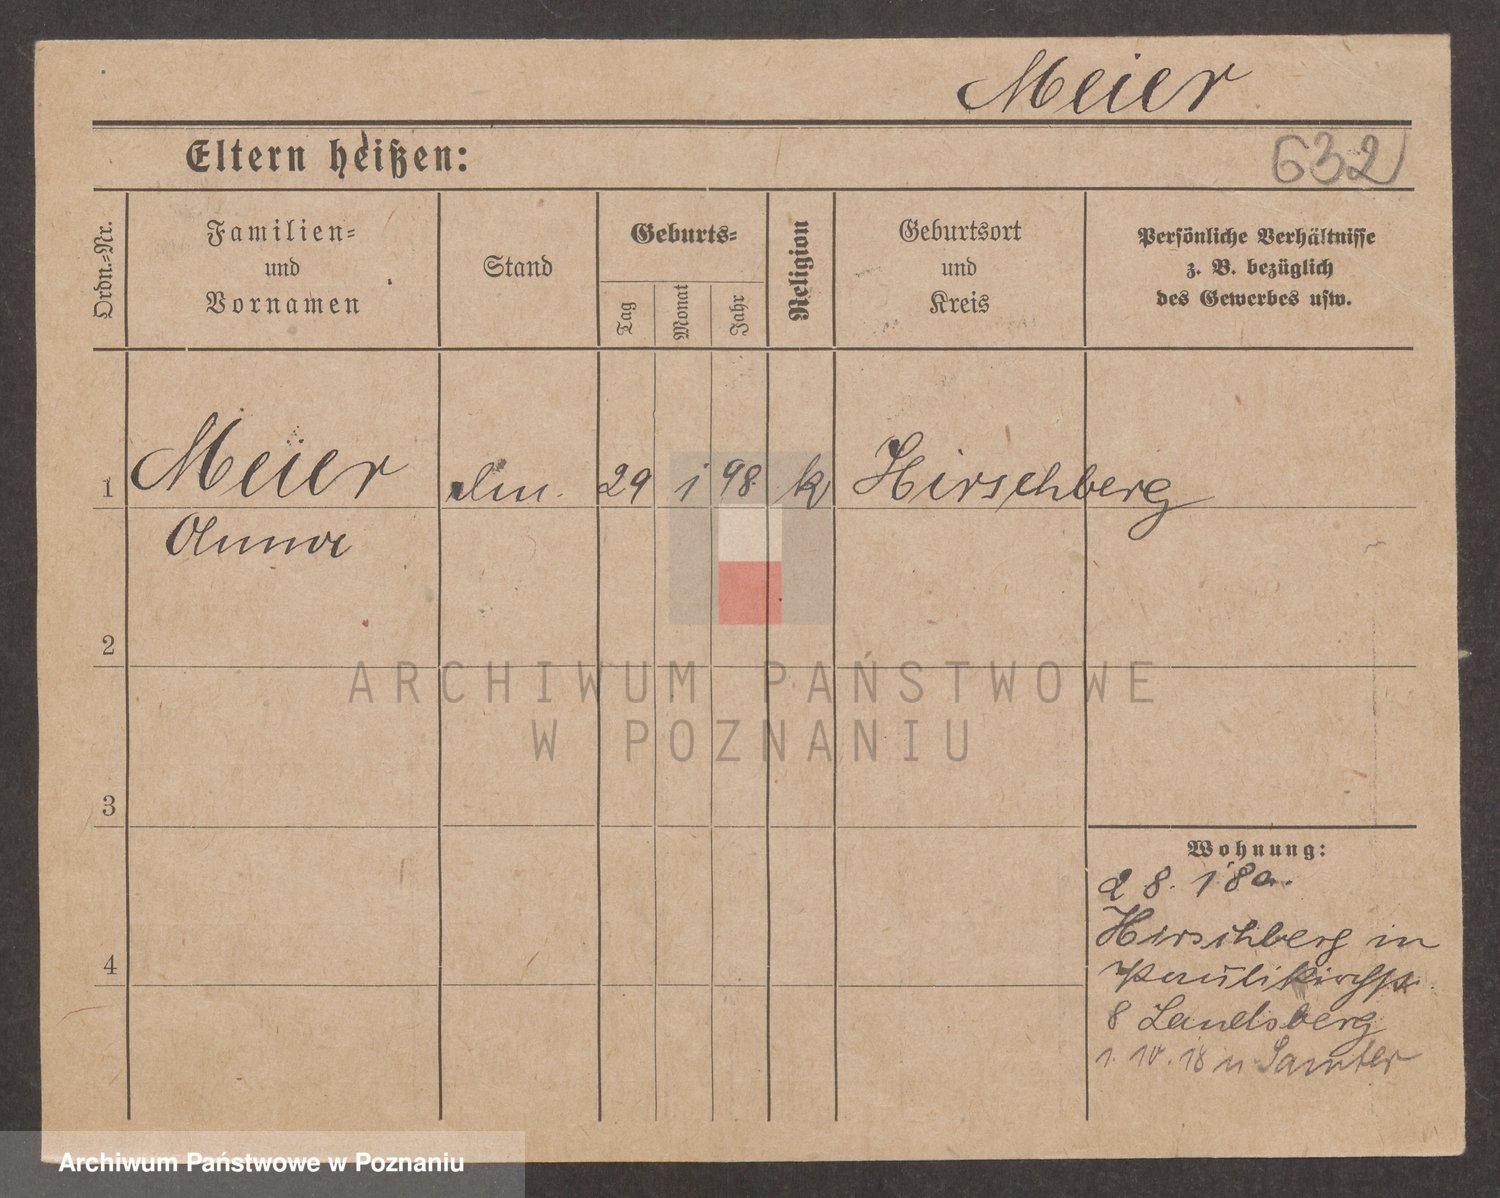 Meier
Eltern heißen:
632
Ordn.-Nr.
Familien-
und
Vornamen
Stand
Geburts-
Tag
Monat
Jahr
Religion
Geburtsort
und
Kreis
Persönliche Verhältnisse
z. B. bezüglich
des Gewerbes usw.
1 Meier 29 1 98 k Hirschberg
Anna
2
3
4
Wohnung:
2 8. 18 a.
Hirschberg in
Paulikirchstr.
8 Landsberg
1. 10. 18 n Samter
ARCHIWUM PAŃSTWOWE
W POZNANIU
Archiwum Państwowe w Poznaniu